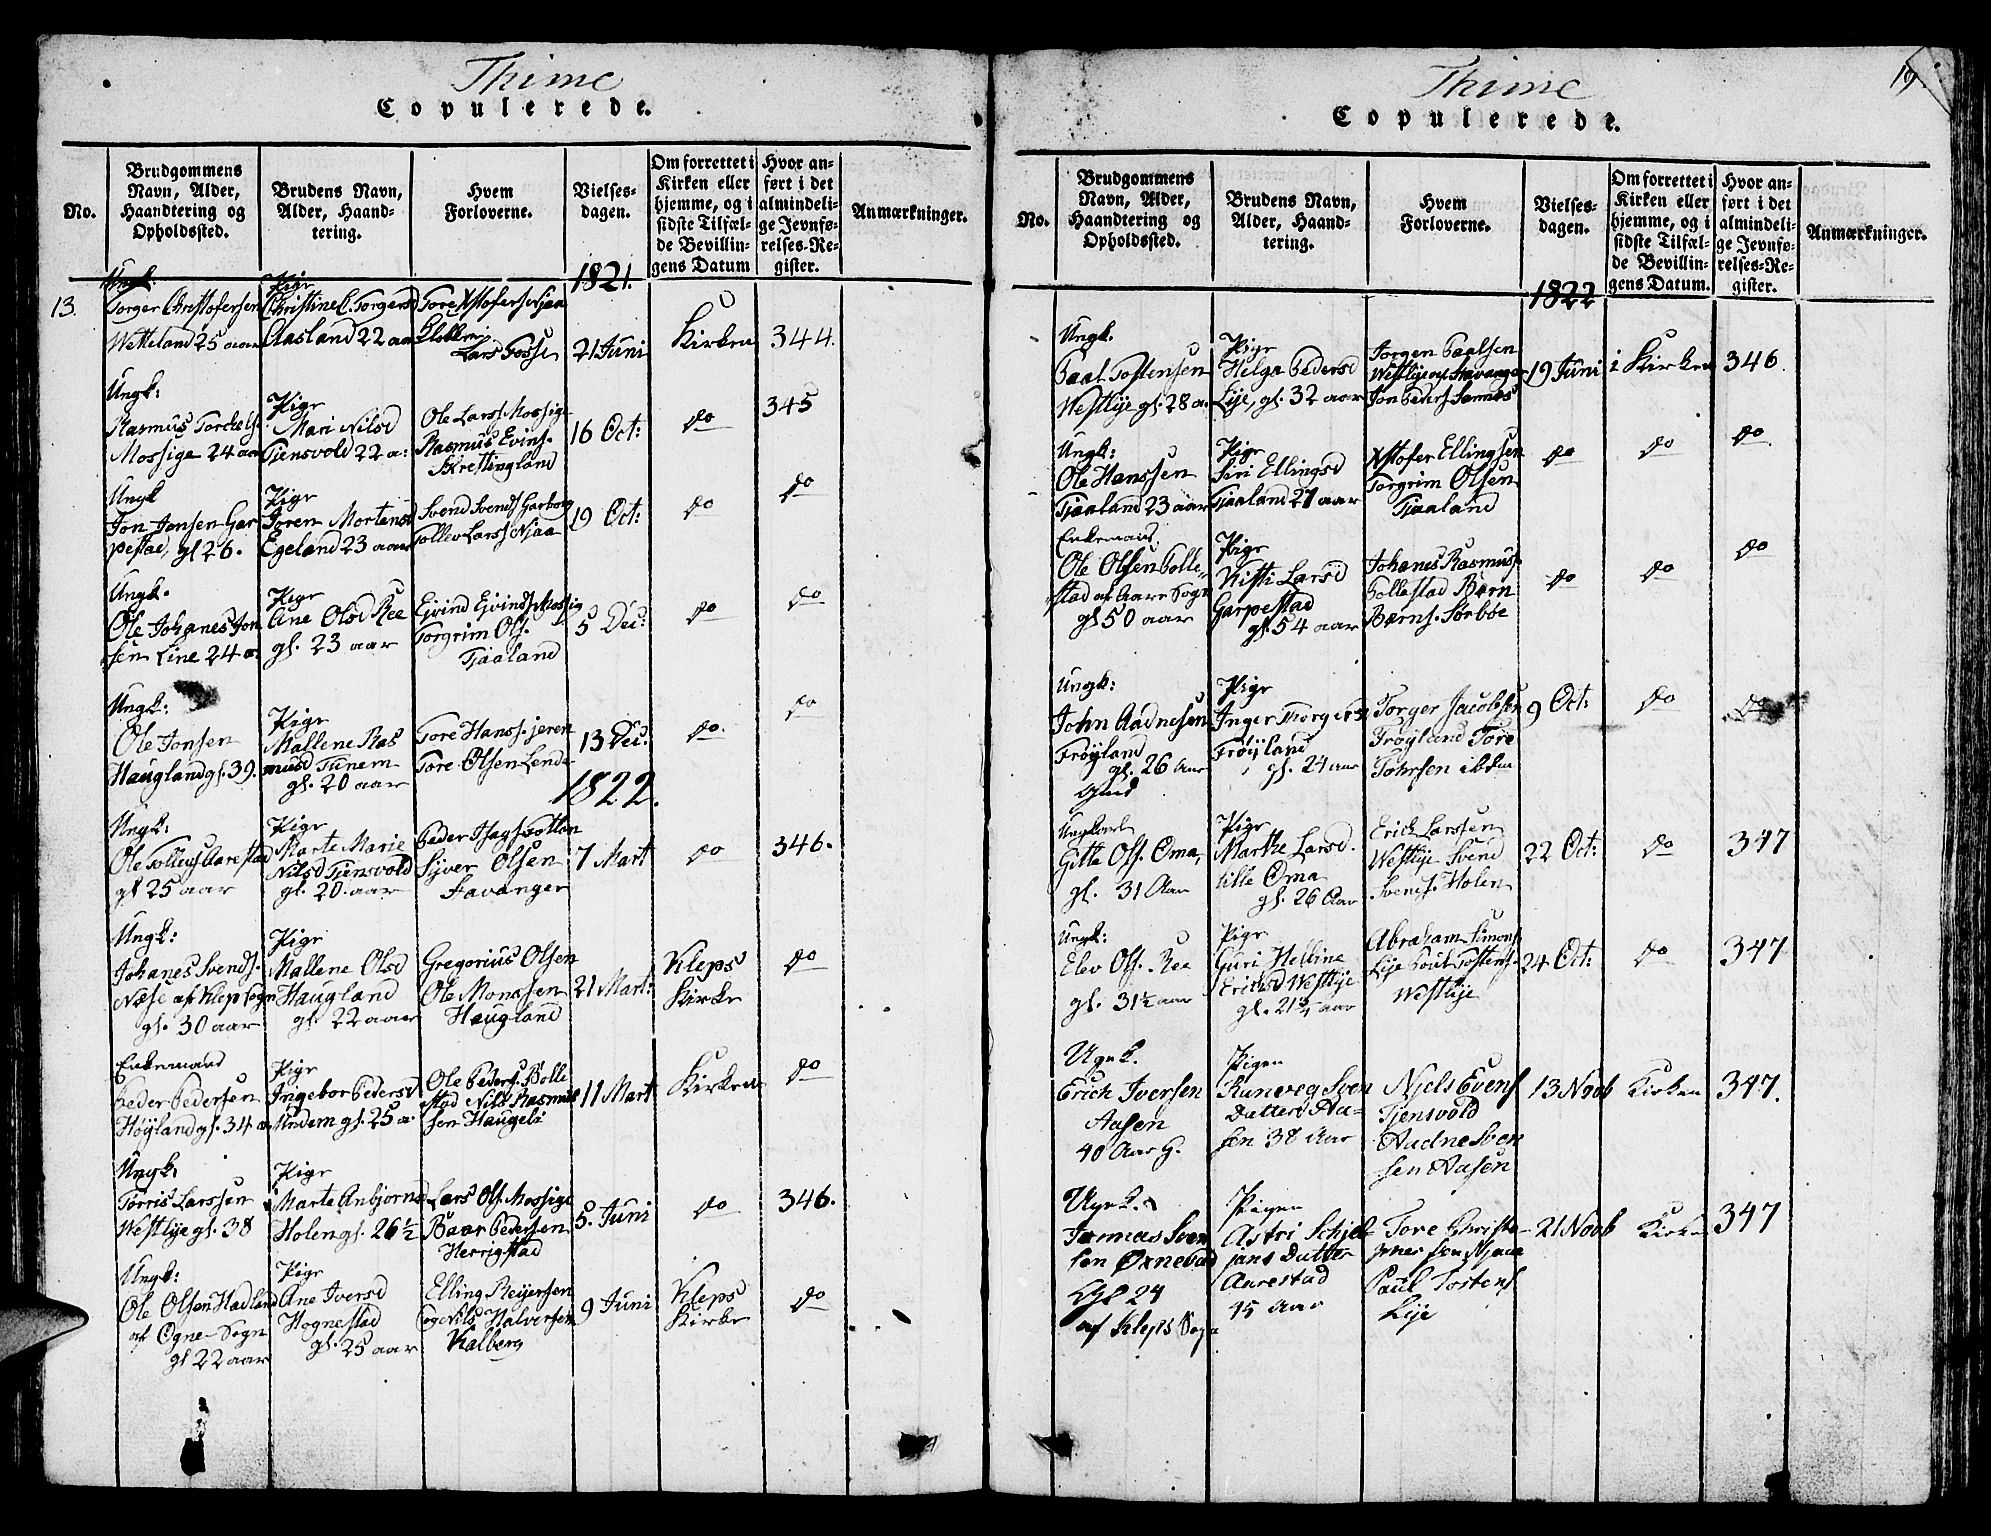 Thime
Copulerede.
No.
Brudgommens
Navn, Alder,
Haandtering og
Opholdssted.
Brudens Navn,
Alder, Haand-
tering.
Hvem
Forloverne.
Vielses-
dagen.
Om forrettet i
Kirken eller
hjemme, og i
sidste Tilfæl-
de Bevillin-
gens Datum
Hvor an-
ført i det
almindeli-
ge Jevnfø-
relses-Re-
gister.
Anmærkninger.
1821.
13.
Ungk.
Torger Christofersen
Wetteland 25 aar
Pige
Christine C. Torgersd
Aasland 22 aar
Tore Xstofersen Njaa
Lars Fosse
21 Juni
Kirken
344.
Ungk:
Rasmus Torckels.
Mossige 24 aar
Pige
Mari Nilsd
Tjensvold 22 a:
Ole Larss. Mossige
Rasmus Evins.
Skrettingland
16 Oct:
do
345
Ungk
Jon Jonsen Gar
pestad, gl 26.
Pige
Joren Mortensd
Egeland 23 aar
Svend Svends Garborg
Tollev Larss Njaa
19 Oct:
do
do
Ungk.
Ole Johanes Jon
sen Line 24 a.
Pige
Ane Olsd Ree
gl. 23 aar
Ejvind Ejvinds. Mossig
Torgrim Ols.
Tjaaland
5 Dec:
do
do
Ungk:
Ole Jonsen
Haugland gl. 39.
Pige
Mallene Ras
musd Tunem
gl. 20 aar
Tore Hanss. jeren
Tore Olsen Lende
13 Dec:
do.
do
1822.
Ungk:
Ole Tollevs Aarestad
gl 25 aar
Pige
Marte Marie
Nilsd Tjensvold
gl. 20. aar
Peder
Sjver Olsen
Stavanger
7 Mart
do
346.
Ungk:
Johanes Svends.
Næse af Klep Sogn
gl. 30 aar
Pige
Mallene Olsd
Haugland
gl. 22 aar
Gregorius Olsen
Ole Monssen
Haugland
21 Mart:
Kleps
Kirke
do
Enkemand
Peder Pedersen
Høyland gl. 34 a.
Pige
Ingebor Pedersd
Undem gl. 25 a.
Ole Peders. Bolle
stad Nils Rasmus
sen Haugeli
11 Mart
Kirken
do
Ungk.
Torris Larssen
Westlye gl. 38
Pige
Marte Anbjørnsd
Holen gl. 26½
Lars Ols. Mossige
Baar Pedersen
Herrigstad
5. Juni
do
346.
Ungk:
Ole Olsen Hadland
af Ogne Sogn
gl 22 aar
Pige
Ane Iversd
Hognestad
gl. 25 aar
Elling Reijersen
og Nils Halversen
Kalberg
9 Juni
Kleps
Kirke
do
19.
Thime
Copulerede.
No.
Brudgommens
Navn, Alder,
Haandtering og
Opholdssted.
Brudens Navn,
Alder, Haand-
tering.
Hvem
Forloverne.
Vielses-
dagen.
Om forrettet i
Kirken eller
hjemme, og i
sidste Tilfæl-
de Bevillin-
gens Datum.
Hvor an-
ført i det
almindeli-
ge Jevnfø-
relses-Re-
gister.
Anmærkninger.
1822
Ungk.
Paal Tostensen
Westlye gl. 28 a.
Pige
Helga Pedersd
Lye, gl. 32 aar
Jorgen Paalsen
Westlye af Stavanger
Jon Peders Somnes
19 Juni
i Kirken
346.
Ungk:
Ole Hanssen
Tjaaland 23 aar
Pige
Siri Ellingsd
Tjaaland 27 aar
Xstofer Ellingsen
Torgrim Olsen
Tjaaland
do
do
do
Enkemand.
Ole Olsen Bolle-
stad af Aare Sogn
gl 50 aar
Pige
Kisti Larsd
Garpestad
gl. 54 aar
Johanes Rasmus.
Bollestad Børn
Børns. Sørbøe
do
do
do
Ungk:
John Aadnesen
Frøyland
gl. 26 Aar
Pige
Inger Torgersd
Frøyland
gl. 24 aar
Torger Jacobsen
Frøyland Tore
Tohrsen ibdm
9 Oct:
do
do
Ungkarl
Gitle Ols. Oma,
gl. 31 Aar
Pige
Marthe Larsd.
lille Oma
gl. 26 Aar
Erich Larssen
Westlye Svend
Svends. Holen
22 Oct:
do
347
Ungk:
Elev Ols. Ree
gl. 31½ aar
Pige
Guri Helline
Ericksd Westlye
gl. 21¾ aar
Abraham Simons.
Lye Poul Tostens.
Westlye
24 Oct:
do
347
Ugnk.
Erich Iversen
Aasen
40 Aar G.
Pigen
Runveg Sven
Datter Aa-
sen 38 Aar
Njels Evens.
Tjensvold
Audne Sven
sen Aasen
13 Novb
Kirken
347.
Ugnk.
Tommas Sven
sen Øxnevad
Gl 24
af Kleps Sogn
Pigen
Astri Schjel-
jans Datter
Aarestad
15 Aar
Tore Christo-
phersen Njaae
Paul Tostens.
Lije
21 Novb
Kirken
347